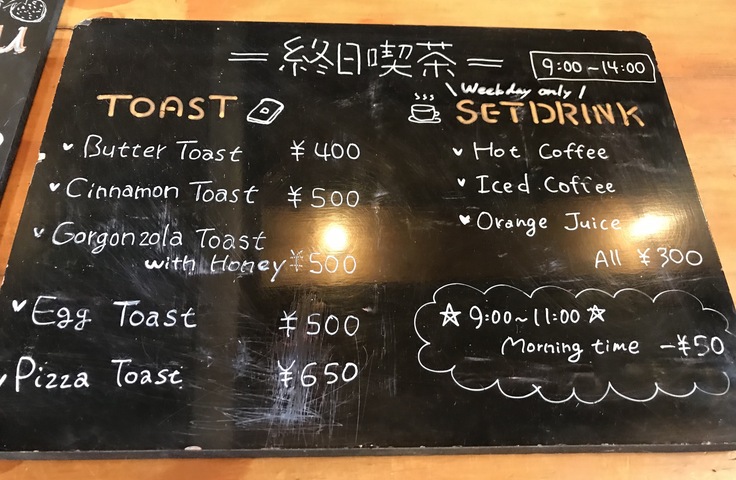 = 終日喫茶 =
9:00~14:00
TOAST
Butter Toast ¥400
Cinnamon Toast ¥500
Gorgonzola Toast
with Honey ¥500
Egg Toast ¥500
Pizza Toast ¥650
\ Weekday only /
SET DRINK
Hot Coffee
Iced Coffee
Orange Juice
All ¥300
☆ 9:00~11:00 ☆
Morning time -¥50